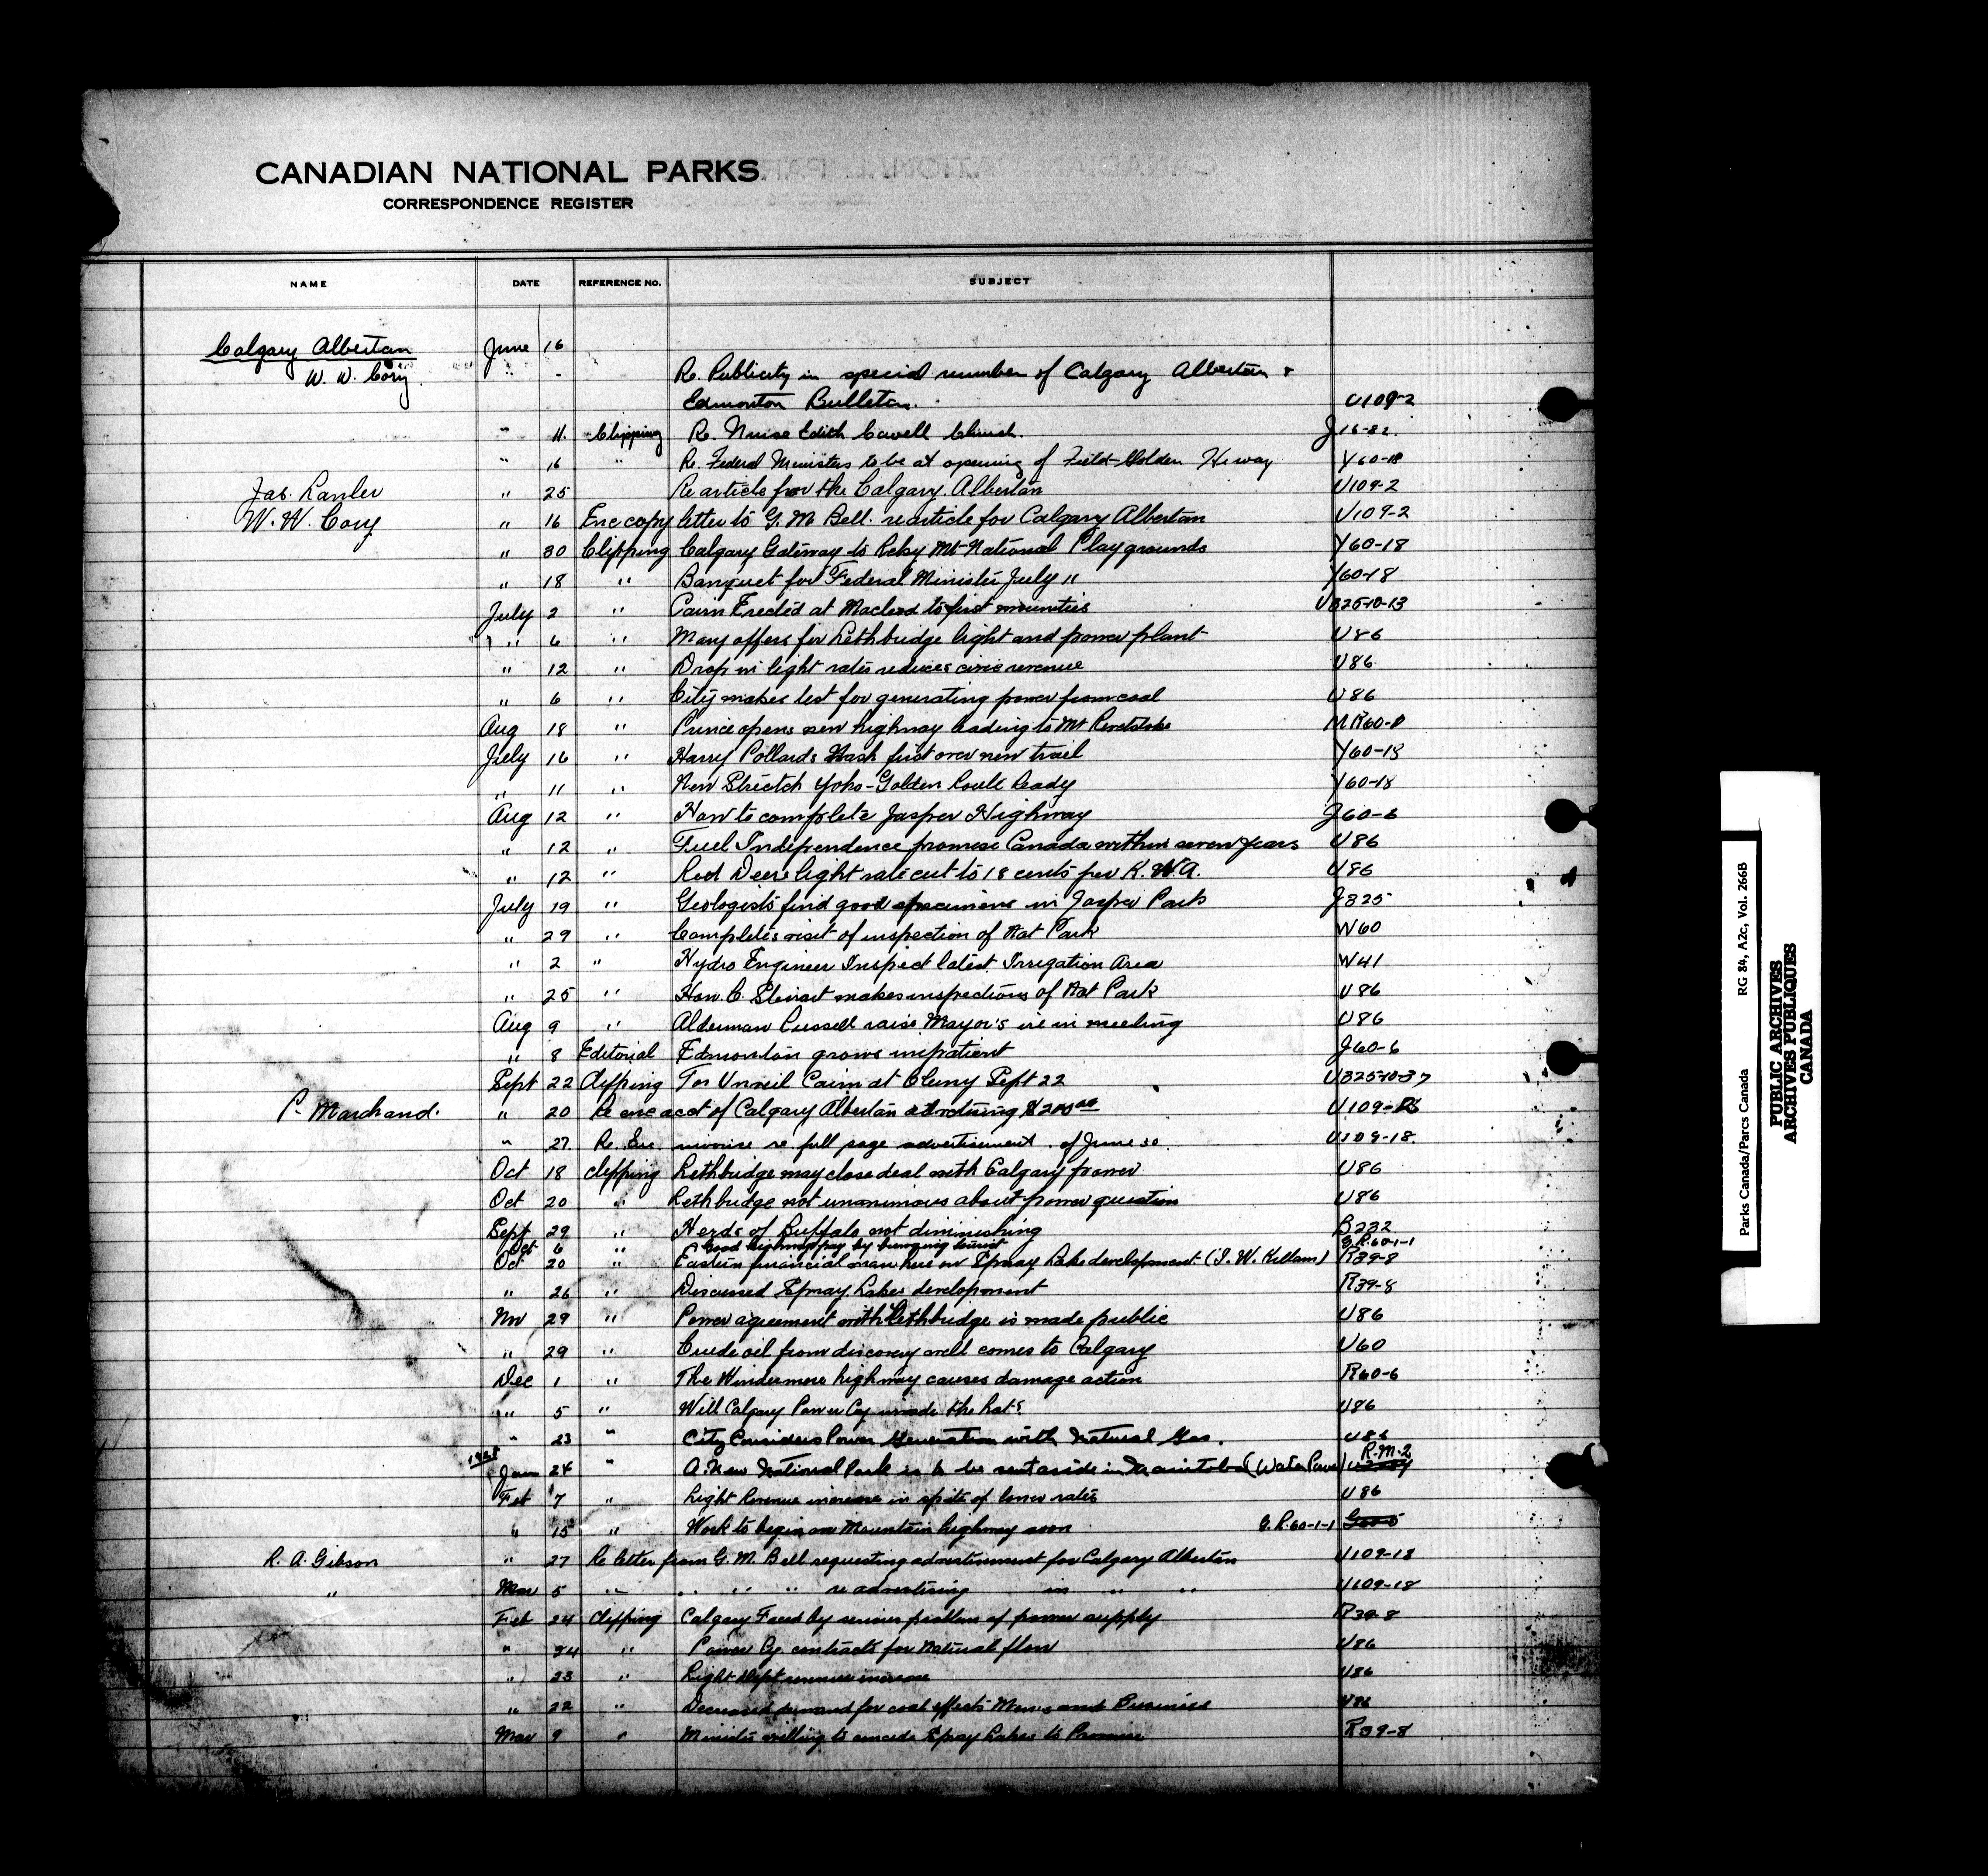 CANADIAN NATIONAL PARKS
CORRESPONDENCE REGISTER
NAME DATE REFERENCE No. SUBJECT
Calgary Albertan June 16
W. W. Cory " - Re. Publicity in special number of Calgary Albertan &
Edmonton Bulletin. U109-2
" 11. Clipping Re. Nurse Edith Cavell Church. J16-82.
" 16 " Re. Federal Ministers to be at opening of Field-Golden Hiway Y60-18
Jas. Lawler " 25 Re article for the Calgary Albertan U109-2
W. W. Cory " 16 Enc copy letter to G. M. Bell. re article for Calgary Albertan U109-2
" 30 Clipping Calgary Gateway to Rcky Mt National Playgrounds Y60-18
" 18 " Banquet for Federal Minister July 11 Y60-18
July 2 " Cairn Erected at Macleod to first mounties U325-10-13
" 6 " Many offers for Lethbridge light and power plant U86
" 12 " Drop in light rates reduces civic revenue U86
" 6 " City makes test for generating power from coal U86
Aug 18 " Prince opens new highway leading to Mt Revelstoke MR60-
July 16 " Harry Pollards Nash first over new trail Y60-18
" 11 " New Stretch Yoho-Golden Route Ready Y60-18
Aug 12 " How to complete Jasper Highway J60-6
" 12 " Fuel Independence promise Canada within seven years U86
" 12 " Red Deers light rate cut to 18 cents per K.W.A. U86
July 19 " Geologists find good specimens in Jasper Park J325
" 29 " Completes visit of inspection of Nat Park W60
" 2 " Hydro Engineer Inspect latest Irrigation Area W41
" 25 " Hon. C. Stewart makes inspections of Nat Park U86
Aug 9 " Alderman Russell raise Mayor's ire in meeting U86
" 8 Editorial Edmonton grows impatient J60-6
Sept 22 Clipping To Unveil Cairn at Cluny Sept 22 U325-10-37
P. Marchand. " 20 Re enc acct of Calgary Albertan advertising $200.00 U109-18
" 27 Re. Enc invoice re full page advertisement of June 30 U109-18.
Oct 18 clipping Lethbridge may close deal with Calgary power U86
Oct 20 " Lethbridge not unanimous about power question U86
Sept 29 " Herds of Buffalo not diminishing B232
Oct 6 " Good highways pay by bringing tourist G.R.60-1-1
Oct 20 " Eastern financial man here on Spray Lake development (I. W. Killam) R39-8
" 26 " Discussed Spray Lakes development R39-8
Nov 29 " Power agreement with Lethbridge is made public U86
" 29 " Crude oil from discovery well comes to Calgary U60
Dec 1 " The Windermere highway causes damage action R60-6
" 5 " Will Calgary Power Coy invade the Hat? U86
" 23 " City Considers Power Generation with Natural Gas. U86
1928
Jan 24 " A New National Park is to be set aside in Manitoba (Water Power) R.M.2
Feb 7 " Light Revenue increase in spite of lower rates U86
" 15 " Work to begin on Mountain highway soon G.R.60-1-1
R. A. Gibson " 27 Re letter from G. M. Bell requesting advertisement for Calgary Albertan U109-18
" Mar 5 " " " " re advertising in " " U109-18
Feb 24 clipping Calgary Faced by serious problem of power supply R39-8
" 24 " Power Cy. contracts for Natural flow U86
" 23 " Light Dept revenue increase U86
" 22 " Decreased demand for coal effects Mines and Business U86
Mar 9 " Minister willing to concede Spray Lakes to Province R39-8
Parks Canada/Parcs Canada RG 84, A2c, Vol. 266B
PUBLIC ARCHIVES
ARCHIVES PUBLIQUES
CANADA